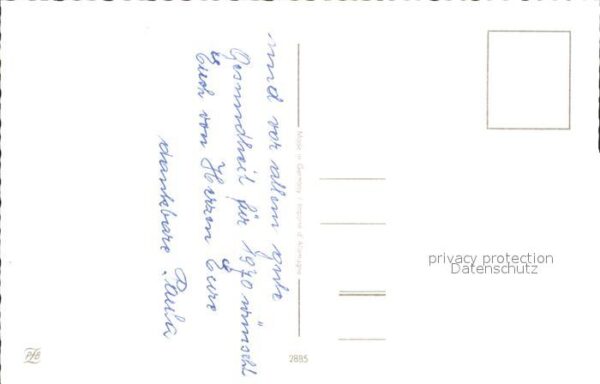 und vor allem gute
Gesundheit für 1970 wünscht
Euch von Herzen Eure
dankbare Paula
Made in Germany / Imprimé d'Allemagne
privacy protection
Datenschutz
PfB
2885